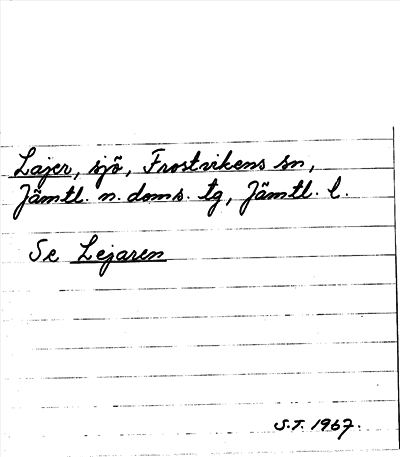 Lajer, sjö, Frostvikens sn,
Jämtl. n. doms. tg, Jämtl. l.
Se Lejaren
S.T. 1967.